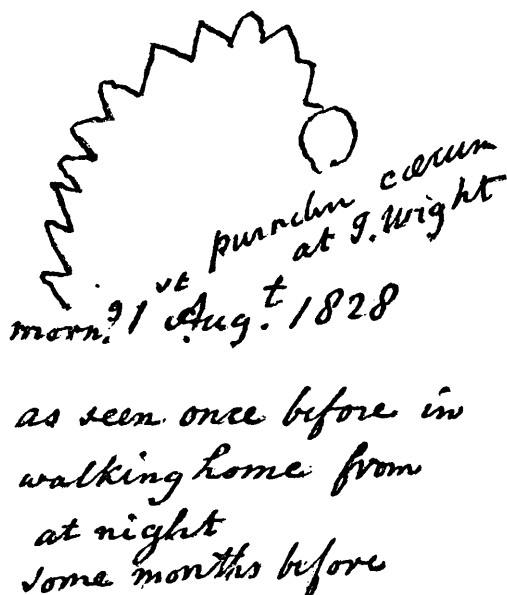 punctum cæcum
at I. Wight
morn.g 1st Aug.t 1828
as seen once before in
walking home from
at night
some months before